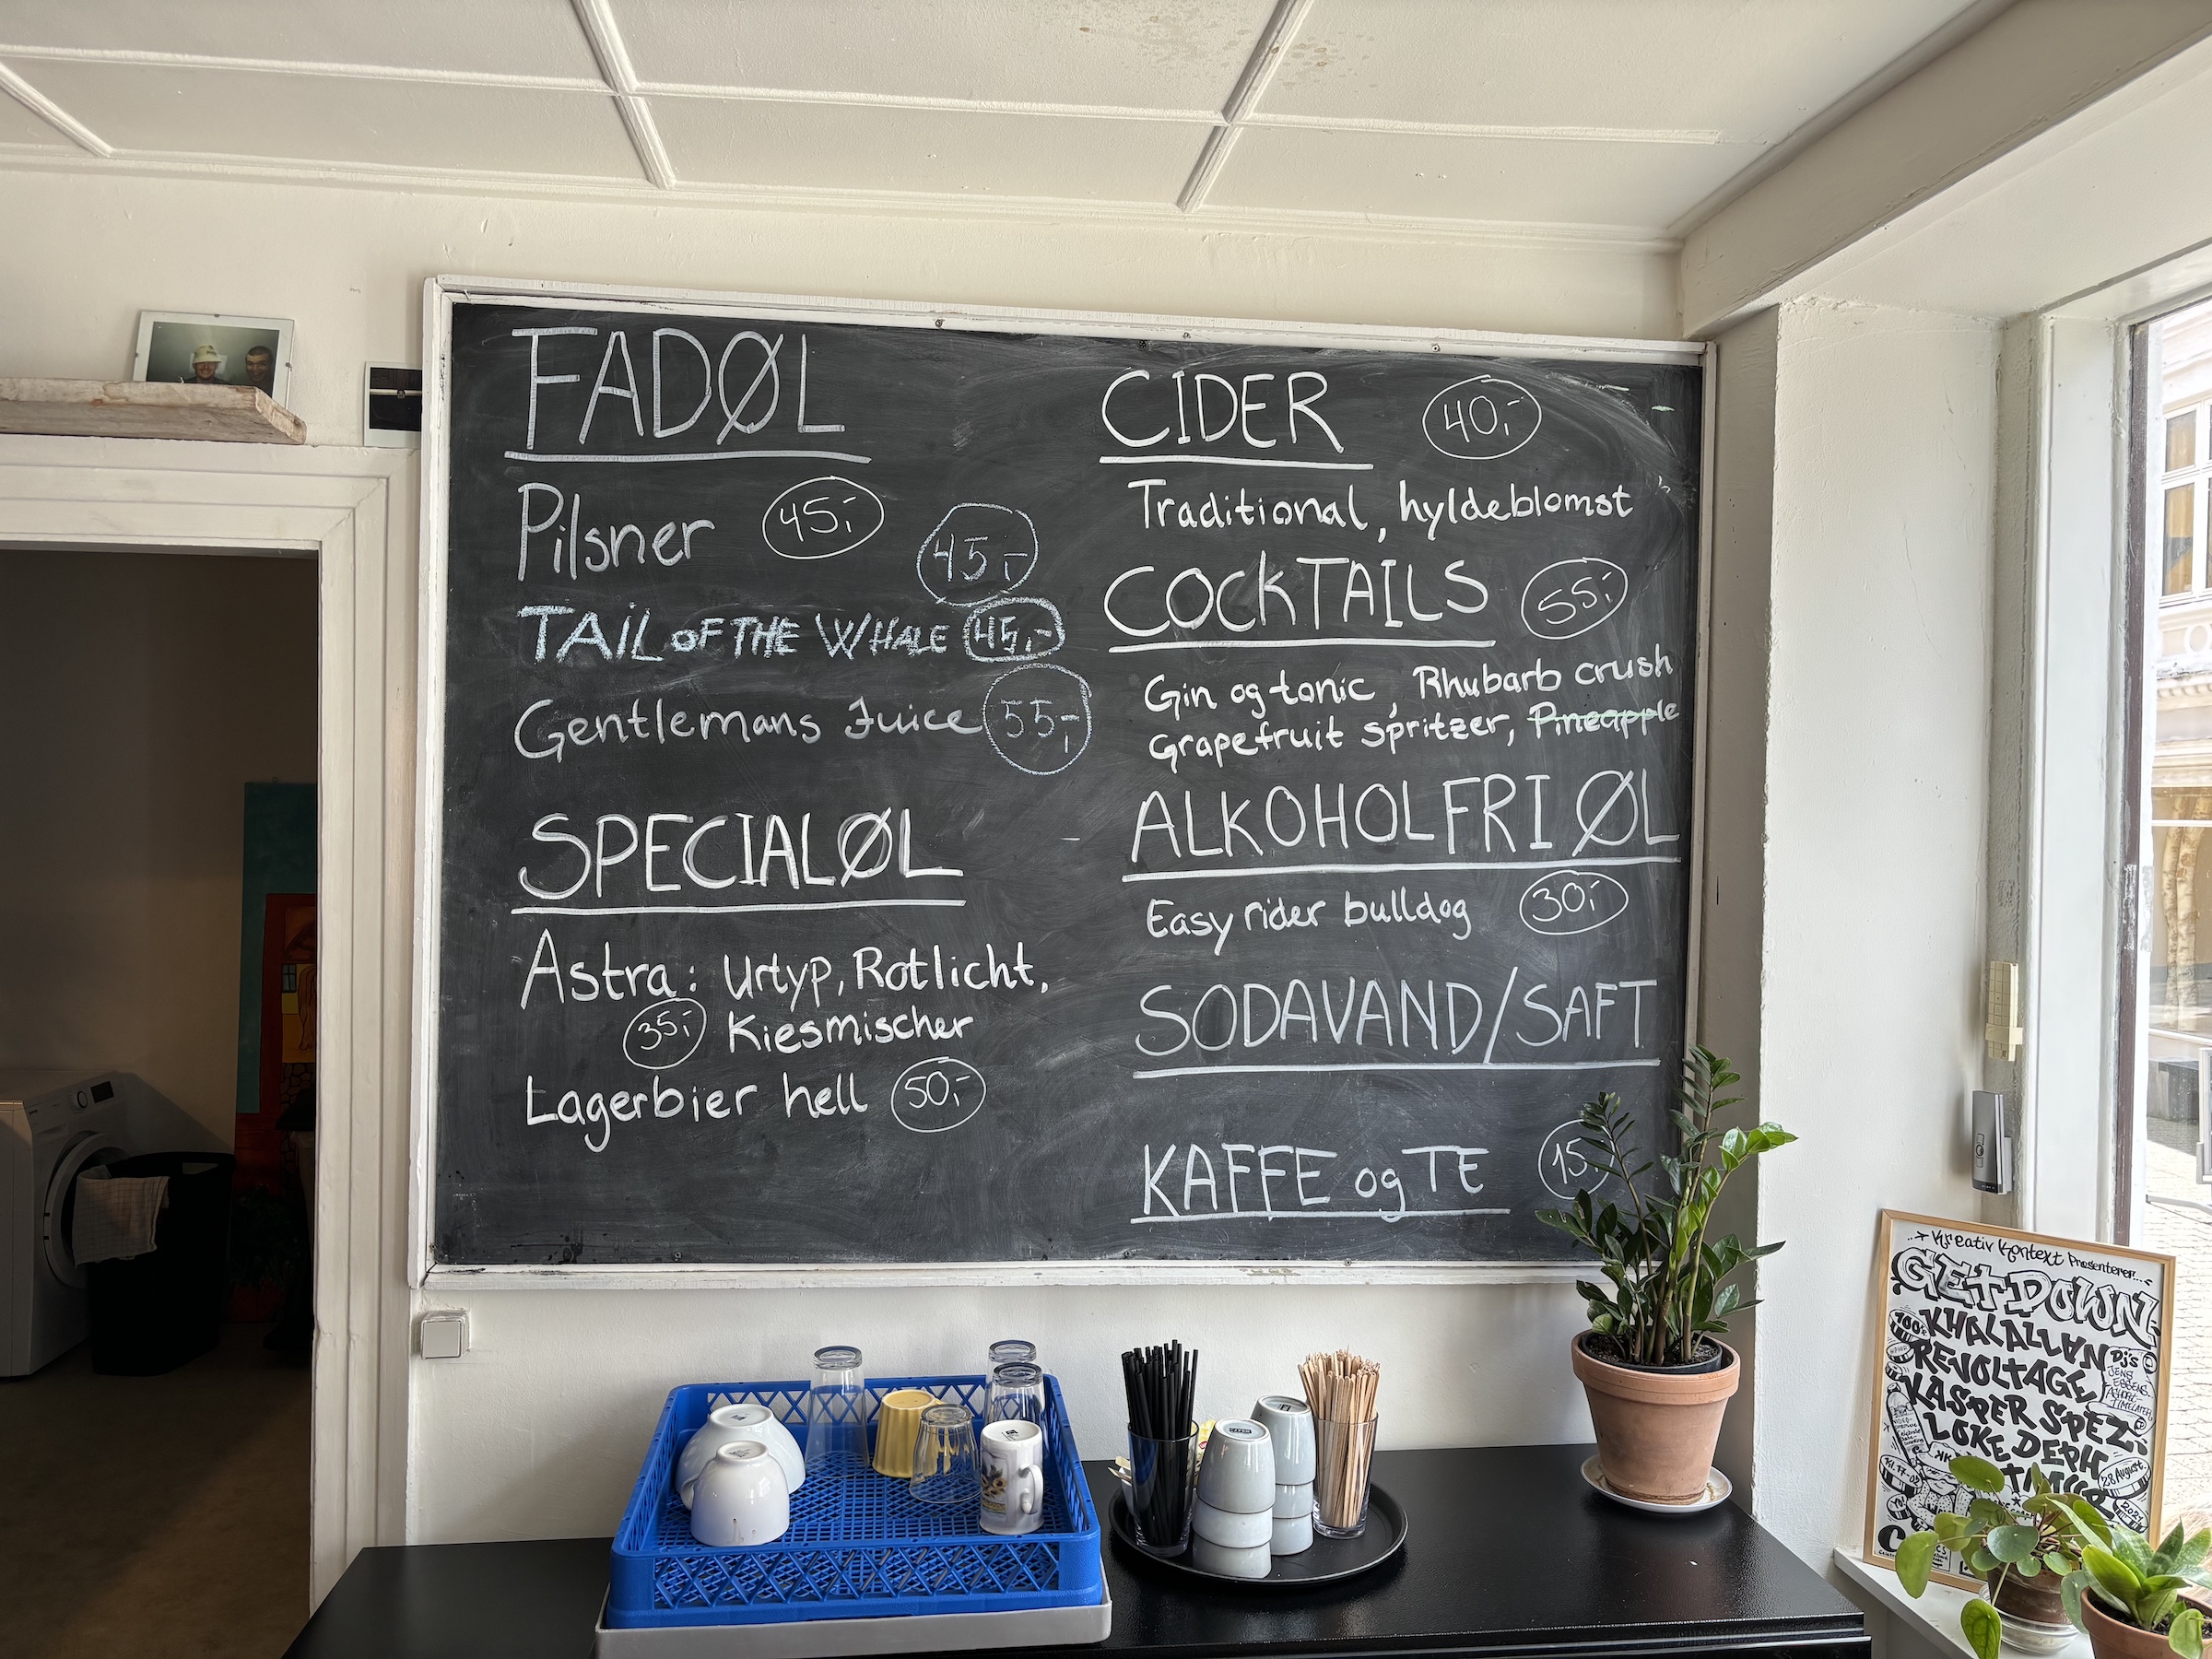 FADØL
Pilsner 45,-
45,-
TAIL OF THE WHALE 45,-
Gentlemans Juice 55,-
SPECIALØL
Astra: Urtyp, Rotlicht,
35,- Kiesmischer
Lagerbier hell 50,-
CIDER 40,-
Traditional, hyldeblomst
COCKTAILS 55,-
Gin og tonic, Rhubarb crush
Grapefruit spritzer, Pineapple
ALKOHOLFRI ØL
Easy rider bulldog 30,-
SODAVAND/SAFT
KAFFE og TE 15,
Kreativ Kontext Præsenterer...
GET DOWN
KHALALLAN
REVOLTAGE
KASPER SPEZ
LOKE DEPH
DJ's
JENS
28 August
2024